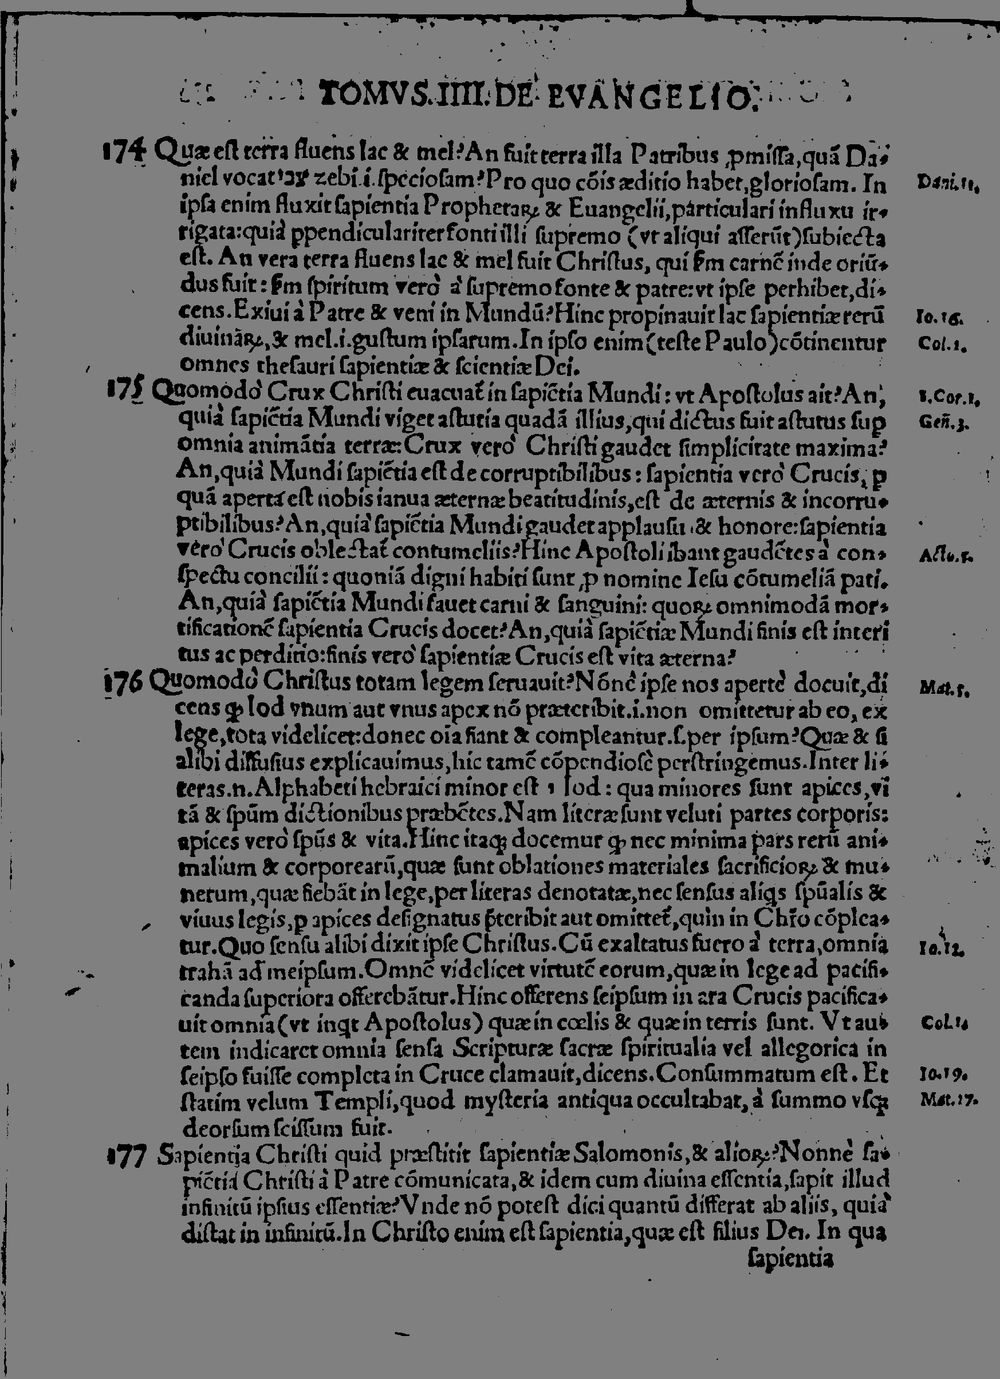 TOMVS.IIII.DE EVANGELIO.
174 Quæ eſt terra fluens lac & mel? An fuit terra illa Patribus ꝓmiſſa, quã Da-
niel vocat צבי zebi.i.ſpecioſam? Pro quo cõis æditio habet, glorioſam. In
Dani.11.
ipſa enim fluxit ſapientia Prophetaꝝ & Euangelii, particulari influxu ir-
rigata: quià ꝑpendiculariter fonti illi ſupremo (vt aliqui aſſerũt) ſubiecta
eſt. An vera terra fluens lac & mel fuit Chriſtus, qui ẜm carnẽ inde oriũ-
dus fuit: ẜm ſpiritum verò à ſupremo fonte & patre: vt ipſe perhibet, di-
cens. Exiui à Patre & veni in Mundũ? Hinc propinauit lac ſapientiæ rerũ
Io.16.
diuinaꝝ, & mel.i.guſtum ipſarum. In ipſo enim (teſte Paulo) cõtinentur
Col.1.
omnes theſauri ſapientiæ & ſcientiæ Dei.
175 Quomodò Crux Chriſti euacuat̃ in ſapiẽtia Mundi: vt Apoſtolus ait? An,
1.Cor.1.
quià ſapiẽtia Mundi viget aſtutia quadã illius, qui dictus fuit aſtutus ſuꝑ
Geñ.3.
omnia animãtia terræ: Crux verò Chriſti gaudet ſimplicitate maxima?
An, quià Mundi ſapiẽtia eſt de corruptibilibus: ſapientia verò Crucis, ꝑ
quã aperta eſt nobis ianua æternæ beatitudinis, eſt de æternis & incorru-
ptibilibus? An, quià ſapiẽtia Mundi gaudet applauſu & honore: ſapientia
verò Crucis oblectat̃ contumeliis? Hinc Apoſtoli ibant gaudẽtes à con-
Acto.5.
ſpectu concilii: quoniã digni habiti ſunt, ꝓ nomine Ieſu cõtumeliã pati.
An, quià ſapiẽtia Mundi fauet carni & ſanguini: quoꝝ omnimodã mor-
tificationẽ ſapientia Crucis docet? An, quià ſapiẽtiæ Mundi finis eſt interi
tus ac perditio: finis verò ſapientiæ Crucis eſt vita æterna?
176 Quomodò Chriſtus totam legem ſeruauit? Nõnè ipſe nos apertè docuit, di
Mat.5.
cens ꝙ Iod vnum aut vnus apex nõ præteribit.i.non omittetur ab eo, ex
lege, tota videlicet: donec oĩa fiant & compleantur.ſ.per ipſum? Quæ & ſi
alibi diffuſius explicauimus, hic tamẽ cõpendioſè perſtringemus. Inter li-
teras.n. Alphabeti hebraici minor eſt י Iod: qua minores ſunt apices, vi
tã & ſpũm dictionibus præbẽtes. Nam literæ ſunt veluti partes corporis:
apices verò ſpũs & vita. Hinc itaꝗ docemur ꝙ nec minima pars rerũ ani-
malium & corporearũ, quæ ſunt oblationes materiales ſacrificioꝝ & mu-
nerum, quæ fiebãt in lege, per literas denotatæ, nec ſenſus aliꝗs ſpũalis &
viuus legis, ꝑ apices deſignatus p̃teribit aut omittet̃, quin in Chr̃o cõplea-
tur. Quo ſenſu alibi dixit ipſe Chriſtus. Cũ exaltatus fuero à terra, omnia
Io.12.
trahã ad meipſum. Omnẽ videlicet virtutẽ eorum, quæ in lege ad pacifi-
canda ſuperiora offerebãtur. Hinc offerens ſeipſum in ara Crucis pacifica-
uit omnia (vt inꝗt Apoſtolus) quæ in cœlis & quæ in terris ſunt. Vt au-
Col.1.
tem indicaret omnia ſenſa Scripturæ ſacræ ſpiritualia vel allegorica in
ſeipſo fuiſſe completa in Cruce clamauit, dicens. Conſummatum eſt. Et
Io.19.
ſtatim velum Templi, quod myſteria antiqua occultabat, à ſummo vſꝗ
Mat.27.
deorſum ſciſſum fuit.
177 Sapientia Chriſti quid præſtitit ſapientiæ Salomonis, & alioꝝ? Nonnè ſa-
piẽtia Chriſti à Patre cõmunicata, & idem cum diuina eſſentia, ſapit illud
infinitũ ipſius eſſentiæ? Vnde nõ poteſt dici quantũ differat ab aliis, quià
diſtat in infinitũ. In Chriſto enim eſt ſapientia, quæ eſt filius Dei. In qua
ſapientia